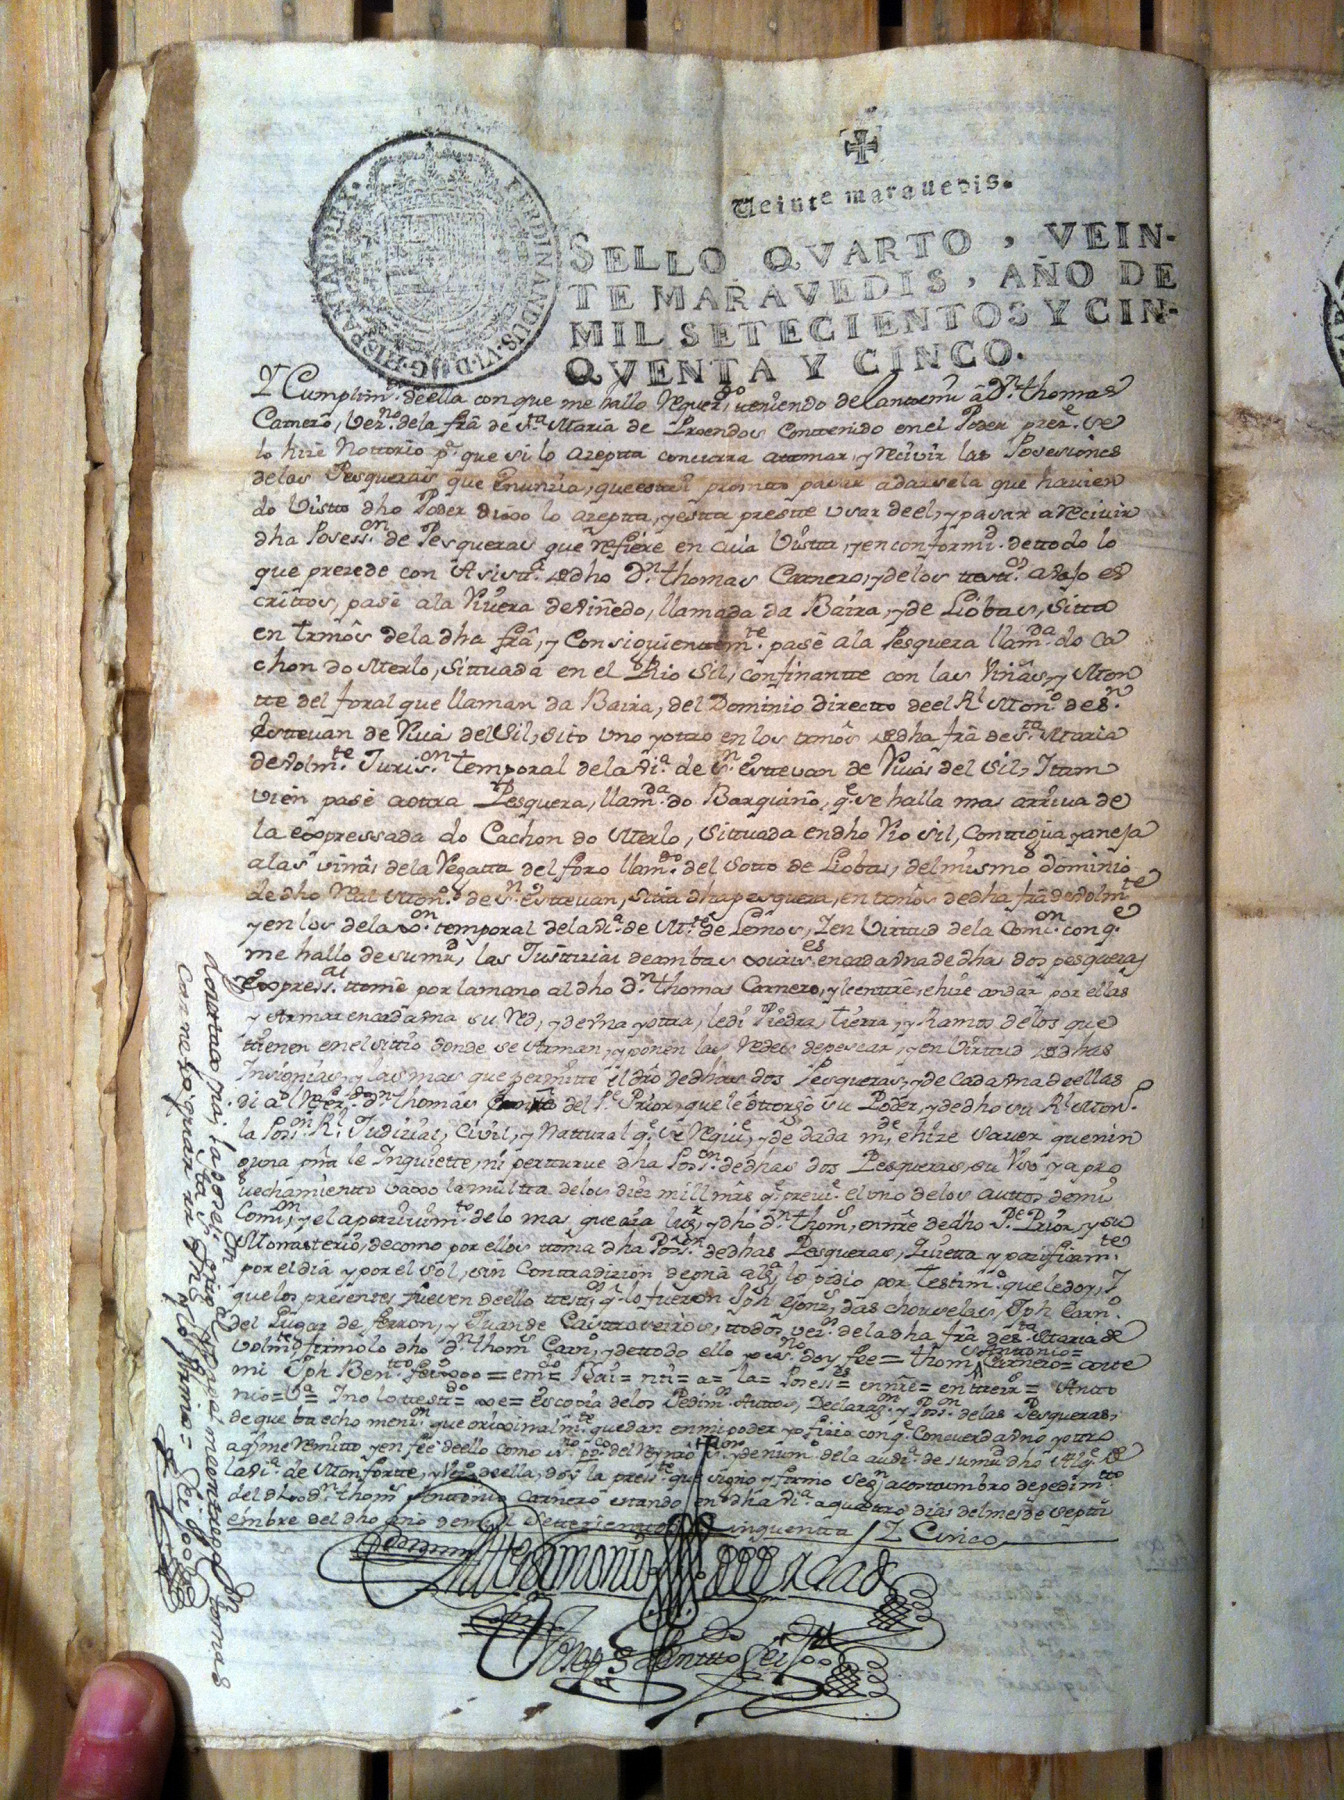 FERDINANDUS·VI·D·G·HISPANIAR·REX·
Veinte maravedis.
SELLO QVARTO, VEIN-
TE MARAVEDIS, AÑO DE
MIL SETECIENTOS Y CIN-
QVENTA Y CINCO.
Cumplim.to de ella con que me hallo requer.do, a Dn. thomas
Carnero, Vez.no de la fra de Sta Maria de Proendos Contenido en el Poder
lo hize Nottorio pa. que si lo azeptta concurra attomar, y recivir las Posesiones
de las Pesqueras que Enunzia, que estoi promto pasar a darsela que havien
do Vistto dho Poder dixo lo azeptta, y estta presste usar de el, y pasar a recivir
dha Posess.on de Pesqueras que refiere en cuia Vistta, y en conformd. de ttodo lo
que prezede con Asistt.a de dho Dn thomas Carnero, y de los testtos. avajo es
crittos, pasé a la Rivera de Viñedo, llamada da Baira, y de Lobas, Sitta
en trmos. de la dha fra, y Consiguienttemte. pasé a la Pesquera llam.da do Ca
chon do Merlo, Sittuada en el Rio Sil, confinantte con las Viñas, y Mon
tte del foral que llaman da Baira, del Dominio directto de el Rl Monro. de Sn.
Esttevan de Rivas del Sil, Sito uno y ottro en los trmos de dha fra de Sta. Maria
de Volmte. Juris.on temporal de la Va. de Sn. Esttevan de Rivas del Sil, Ittam
vien pasé a ottra Pesquera, llam.da do Barquiño, qe. se halla mas arriva de
la expressada do Cachon do Merlo, Sittuada en dho Rio Sil, Conttigua y aneja
a las viñas de la Regatta del foro llam.do del Sotto de Lobas, del mismo dominio
de dho Real Monro. de Sn. Esttevan, sitta dha pesquera, en trmos de dha fra de Volmte
y en los de la temporal de la Va. de Mte. de Lemos, I en Virttud de la Comon. con qe.
me hallo de sumd., las Justtizias de ambas en cada una de dhas dos pesqueras
express.as ttomé por la mano al dho Dn. thomas Carnero, y le enttre, e hize andar por ellas
y Armar en cada una su Red, y de una y ottra, le di Piedra, tierra, y Ramos de los que
ttienen en el sittio donde se Arman, y ponen las Redes de pescar, y en Virttud de dhas
Insignias, y las mas que permitte el dro de dhas dos Pesqueras, y de cada una de ellas
di al Dn. thomas del Pe. Prior, que le ottorgó su Poder, y de dho su Rl Monro.
la Poson. Rl. Judizial, Civil, y Nattural qe. se requie, y de dada me. e hize saver que nin
guna prna le Inquiette, ni pertturve dha Poson. de dhas dos Pesqueras, su Uso, y apro
vechamientto vaxo la multta de los diez mill mrs qe. previe. el uno de los auttos de mi
Comon, y el aperzivimto. de lo mas que aia lugr., y dho Dn. thoms, en nre de dho Pe. Prior, y su
Monasterio, de como por ellos ttoma dha Poson. de dhas Pesqueras, Quietta y pazificamte.
por el dia y por el sol, sin Contradizion de prna alga., lo pidio por testimo. que le doy, I
que los presentes fuesen de ello testtos, qe. lo fueron Jph Gonz.s das Chouselas, Jph Carno.
del Lugar de ferron, y Juan de Casttroverdes, ttodos vezos. de la dha fra de Sta. Maria de
Volmte firmolo dho Dn. thoms Carno., y de ttodo ello yo esno. doy fee = thoms Anttonio Carnero = antte
mi Jph Bentto feixoo = em = Bai = nu = a = la = Posess = en nre = enttre = Antto
nio = = Ino lo = Es copia de los Pedimos. Auttos, Declarazon. y Poson. de las Pesqueras,
de que ba echo menzon. que orixinalmte. quedan en mi poder y ofizio con qe. Concuerda uno y ottro
a qe. me remitto, y en fee de ello como esno. del y de numo. de la audia. de sumd. dho Alge. de
la Va. de Monfortte, y Vezo. de ella, doy la presste. que signo y firmo segn. acosttumbro de pedimtto
del dho Dn. thoms Anttonio Carnero esttando en dha Va. a quattro dias del mes de Septti
embre del dho año de mil Settezienttos Cinquentta I Cinco
En tesstimonio de verdad
Joseph Bentto feixoo